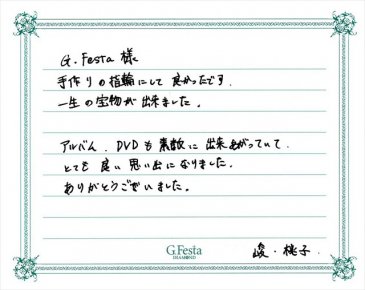 G.Festa 様
手作りの指輪にして良かったです.
一生の宝物が出来ました.
アルバム.DVDも素敵に出来あがっていて.
とても良い思い出になりました.
ありがとうございました.
G.Festa
DIAMOND
峻・桃子